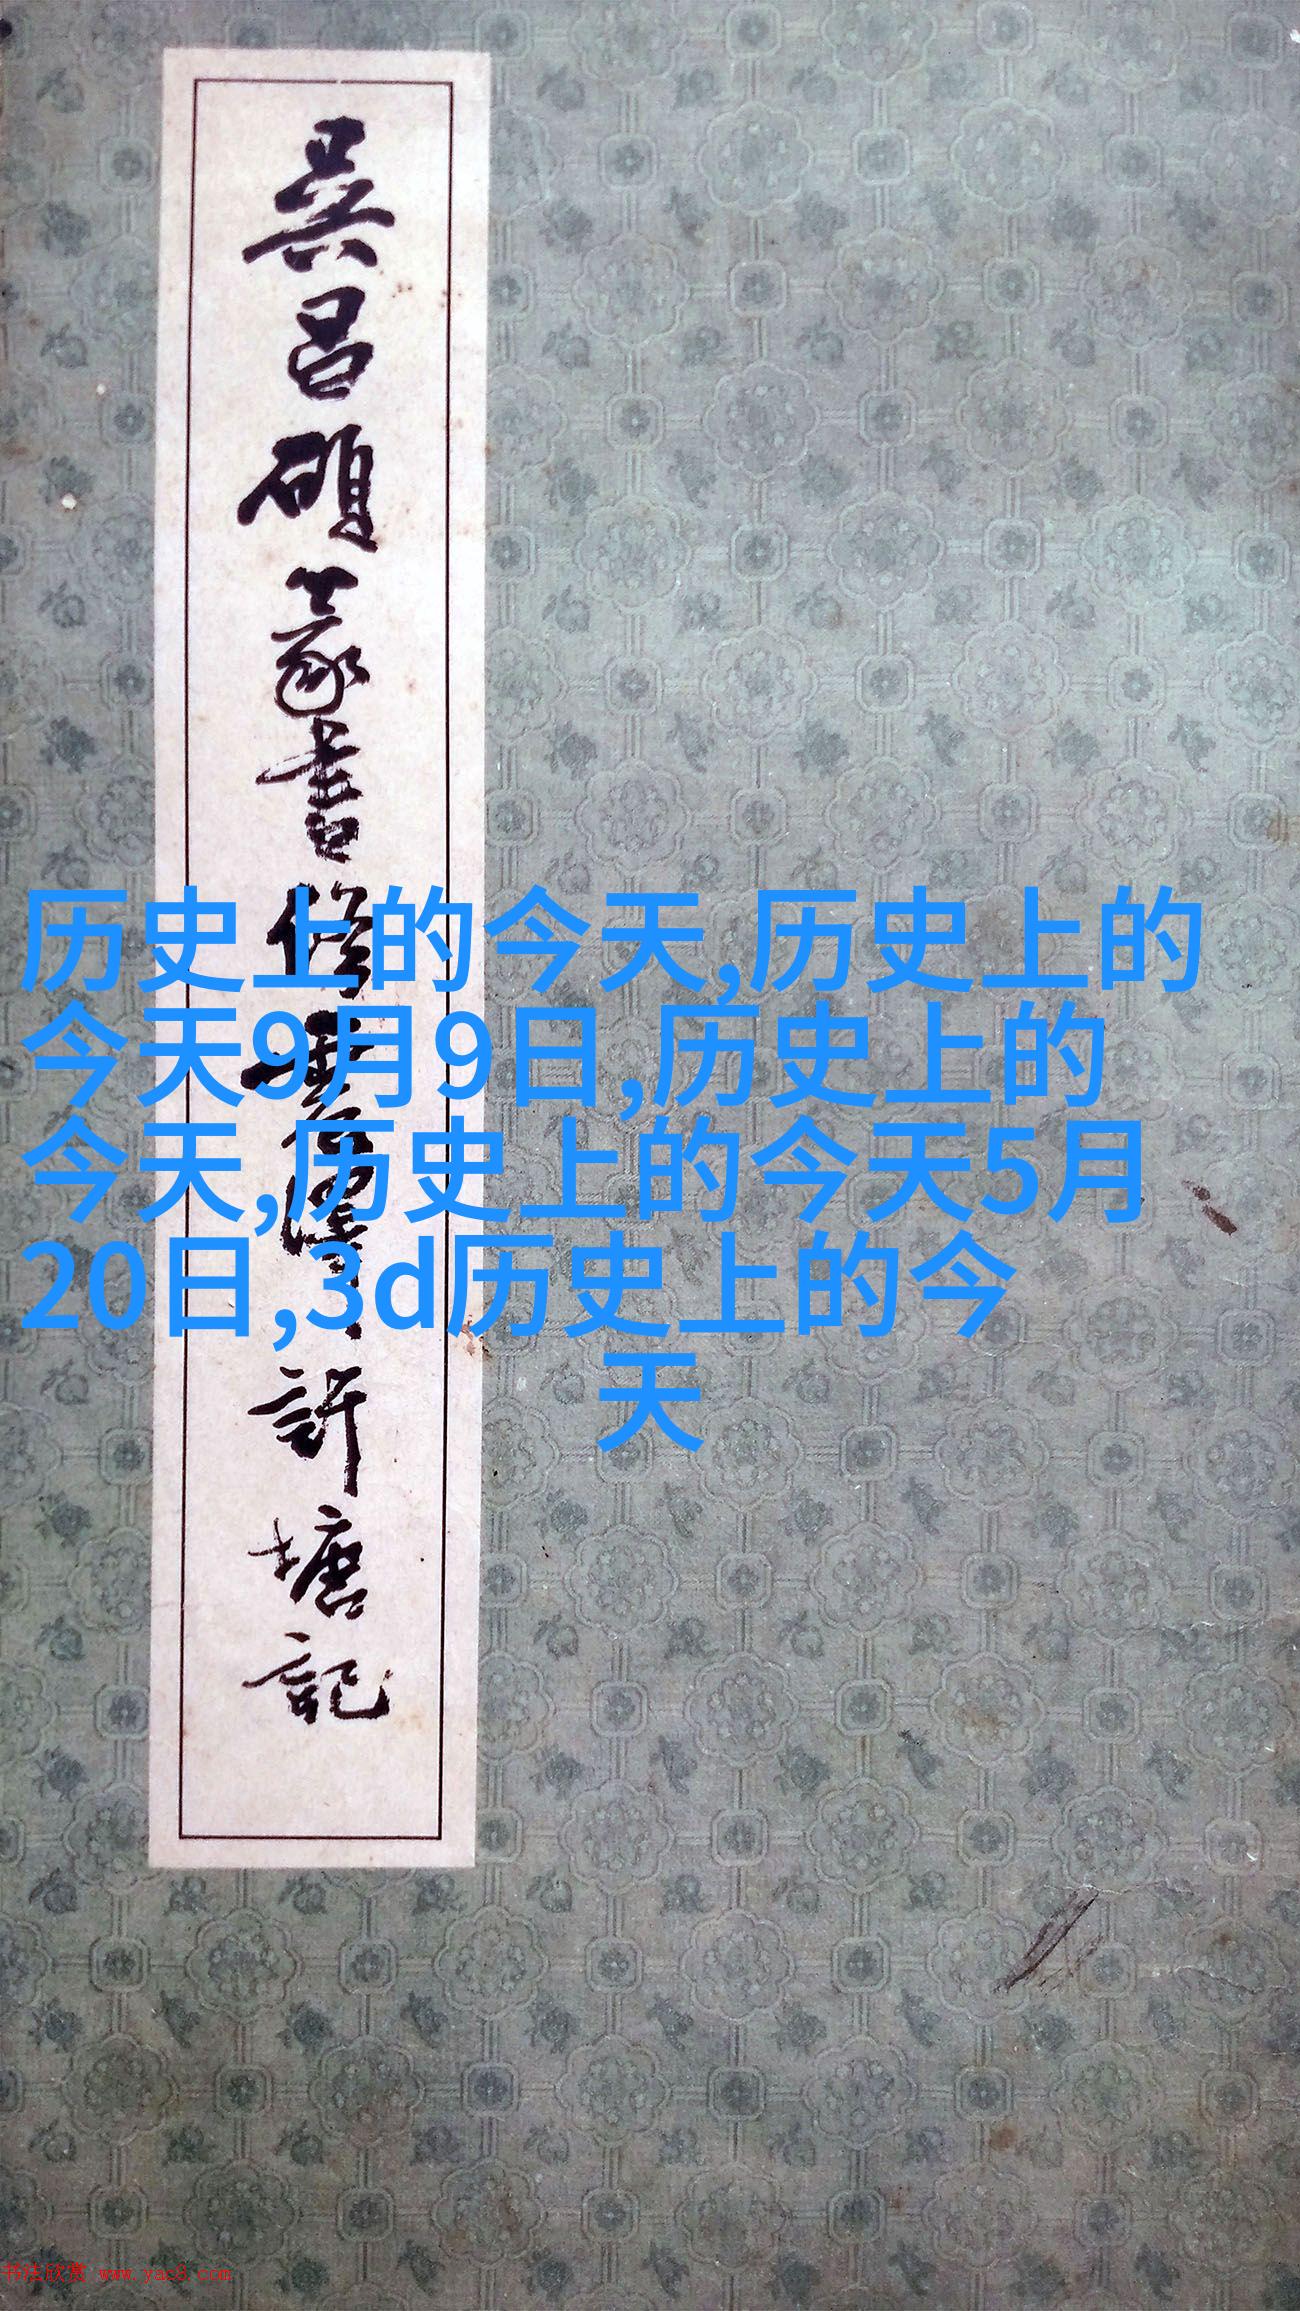 吴昌硕篆书修震泽许塘記
历史上的今天,历史上的
今天9月9日,历史上的
今天,历史上的今天5月
20日,3d历史上的今
天
书法欣赏 www.yac8.com